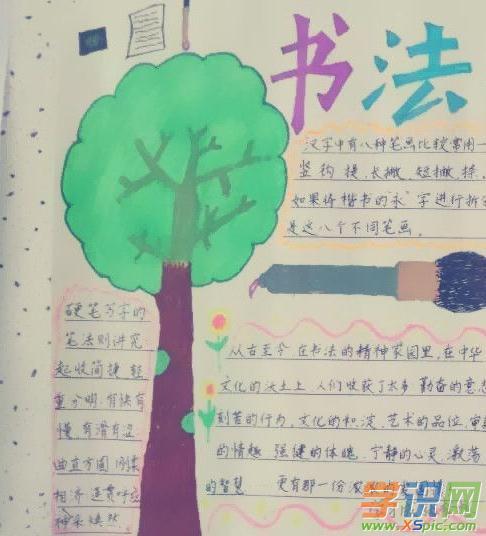 书法
汉字中有八种笔画比较常用一
竖 钩 提、长撇、短撇、捺、
如果将楷书的"永"字进行拆
是这八个不同笔画。
硬笔写字的
笔法则讲究
起收简捷 轻
重分明,有快有
慢,有滑有涩
曲直方圆 刚柔
相济 连贯呼应
神采焕然
从古至今 在书法的精神家园里,在中华
文化的沃土上 人们收获了太多 勤奋的意志
刻苦的行为,文化的积淀,艺术的品位,审
的情趣 强健的体魄,宁静的心灵,激荡
的智慧 更有那一份
学识网
www.XSpic.com